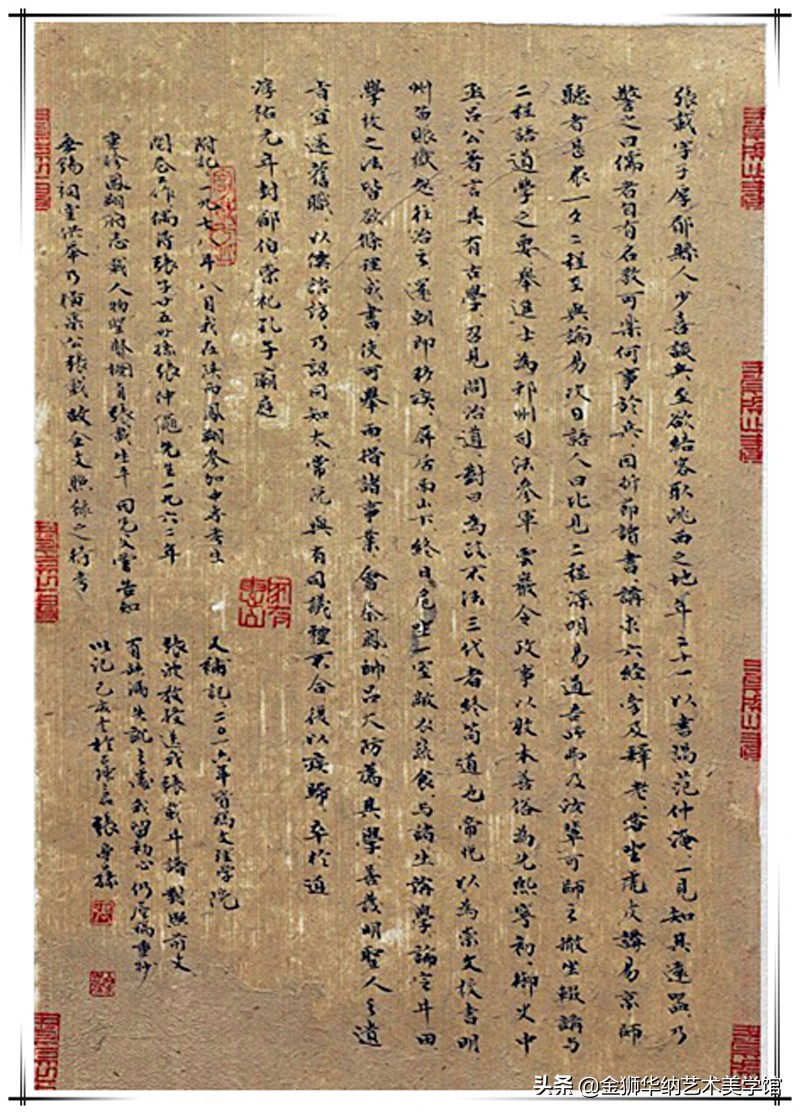 張載字子厚郿縣人少喜談兵至欲結客取洮西之地年二十一以書謁范仲淹一見知其遠器乃
警之曰儒者自有名教可樂何事於兵因折節讀書講求六經旁及釋老嘗坐虎皮講易京師
聽者甚衆一夕二程至與論易次日語人曰比見二程深明易道吾所弗及汝輩可師之撤坐輟講与
二程語道學之要舉進士為祁州司法參軍雲巖令政事以敦本善俗為先熙寧初御史中
丞呂公著言其有古學召見問治道對曰為政不法三代者終苟道也帝悅以為崇文校書明
州苗賬獄起往治之還朝即移疾屏居南山下終日危坐一室敝衣蔬食与諸生講學論定井田
學校之法皆欲條理成書使可舉而措諸事業會秦鳳帥呂大防薦其學善發明聖人之遺
旨宜還舊職以備諮訪乃詔同知太常院與有司議禮不合復以疾歸卒於道
淳祐元年封郿伯崇祀孔子廟庭
附記一九七八年八月我在陝西鳳翔參加中專考生
閱卷工作偶得張子廿五世孫張仲先生一九六二年
重修鳳翔府志載人物聖賢欄有張載生平告知
無錫祠堂供奉乃橫渠公張載故全文照錄之待考
又補記二〇一六年寶鷄文理學院
張波教授送我張載年譜對照前文
有缺漏失訛之處我留初心仍依稿重抄
以記己亥張
头条 @金狮华纳艺术美学馆